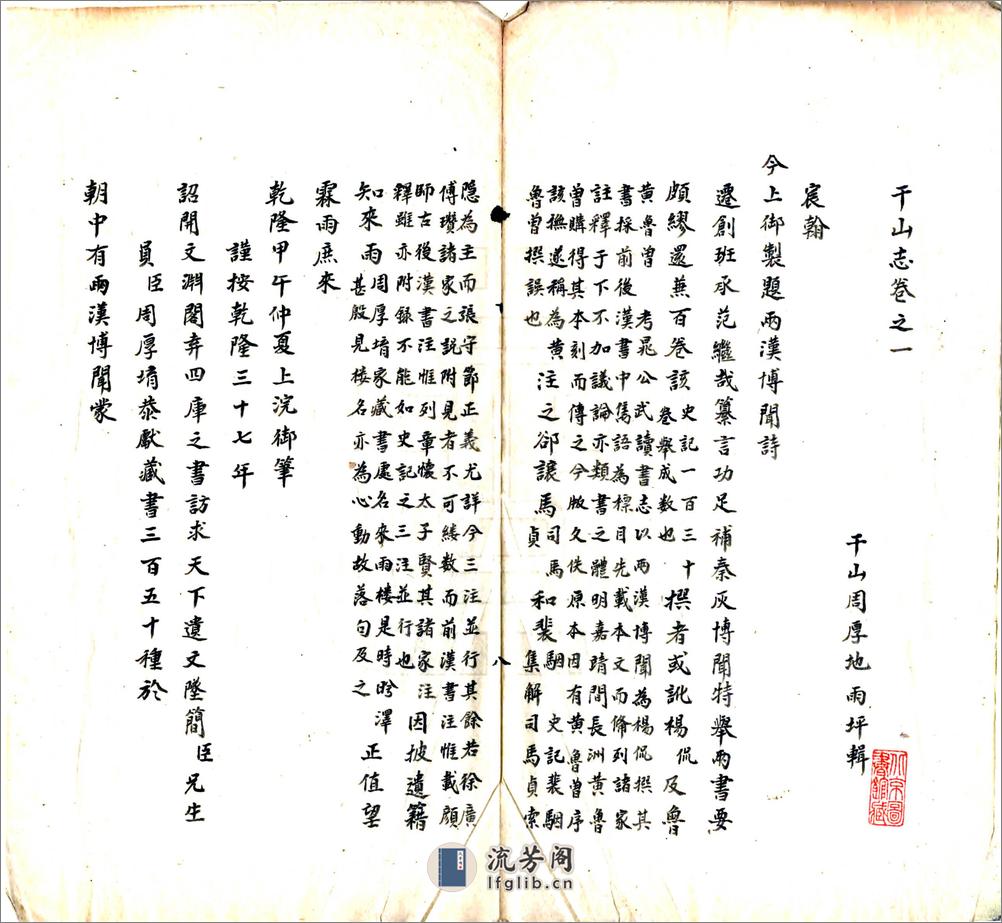 干山志卷之一
干山周厚地雨坪輯
宸翰
今上御製題兩漢博聞詩
遷創班承范繼哉纂言功足補秦灰博聞特舉兩書要
頗繆還蕪百卷該史記一百三十卷舉成數也撰者或訛楊侃及魯
黃魯曾考晁公武讀書志以兩漢博聞為楊侃撰其
書採前後漢書中雋語為標目先載本文而條列諸家
註釋于下不加議論亦類書之體明嘉靖間長洲黃魯
曾購得其本刻而傳之今版久佚原本因有黃魯曾序
該撫遂稱為黃魯曾撰誤也注之郤讓馬司馬貞和裴裴駰史記裴駰集解司馬貞索
隱為主而張守節正義尤詳今三注並行其餘若徐廣
傅瓚諸家之說附見者不可縷数而前漢書注惟載顏
師古後漢書注惟列章懷太子賢其諸家注
釋雖亦附錄不能如史記之三注並行也因披遺籍
知來雨周厚堉家藏書處名來雨樓是時盼澤甚殷見樓名亦為心動故落句及之正值望
霖雨庶來
乾隆甲午仲夏上浣御筆
謹按乾隆三十七年
詔開文淵閣弆四庫之書訪求天下遺文墜簡臣兄生
員臣周厚堉恭獻藏書三百五十種於
朝中有兩漢博聞蒙
八
流芳阁
lfglib.cn